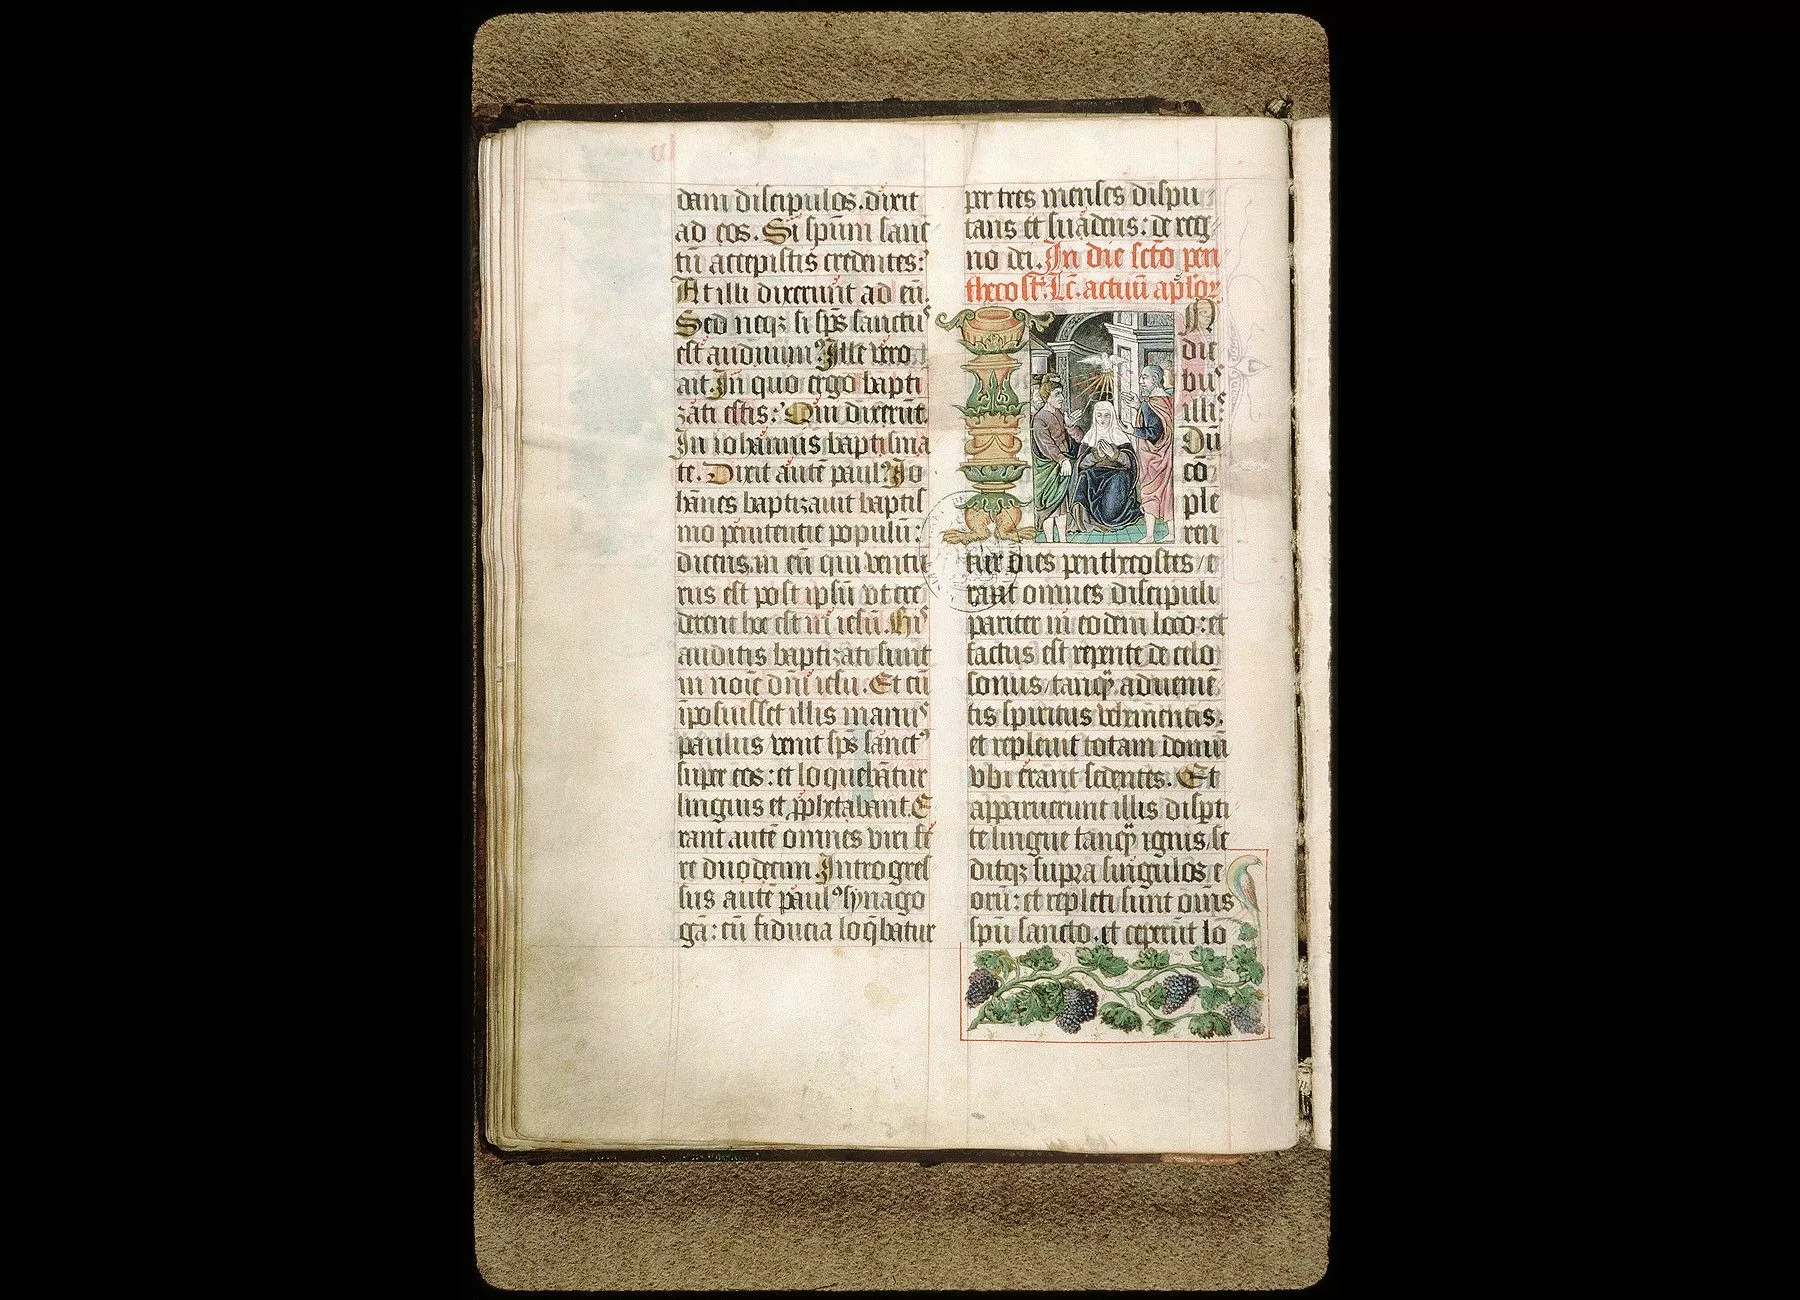 dam discipulos. dixit
ad eos. Si spūm sanc
tū accepistis credentes:
At illi dixerunt ad eū.
Sed neqꝫ si sp̄s sanctuˢ
est audiuim⁹. Ille vero
ait. In quo ergo bapti
zati estis: Qui dixerūt.
In iohannis baptisma
te. Dixit autē paul⁹. Io
hānes baptizauit baptis
mo penitentie populū:
dicens. in eū qui ventu
rus est post ipsū vt cre
derent hoc est in iesū. Hiˢ
auditis baptizati sunt
in noīe dn̄i iesu. Et cū
īposuisset illis manuˢ
paulus venit sp̄s sanct⁹
super eos: et loquebātur
linguis et ꝓphetabant. E
rant autē omnes viri fe
re duodecim. Introgres
sus autē paul⁹ synago
gā: cū fiducia loq̄batur
per tres menses dispu
tans et suadens: de reg
no dei. In die scto pen
thecost. Lc̄. actuū aplōꝝ
IN
die
buˢ
illiˢ
Dū
cō
ple
ren
tur dies penthecostes / e
rant omnes discipuli
pariter in eodem loco: et
factus est repente de celo
sonus / tanqȝ aduenie
tis spiritus vehementis.
et repleuit totam domū
vbi erant sedentes. Et
apparuerunt illis disꝑti
te lingue tanqȝ ignis / se
ditqꝫ supra singulos e
orū: et repleti sunt oīns
spū sancto. et ceperūt lo